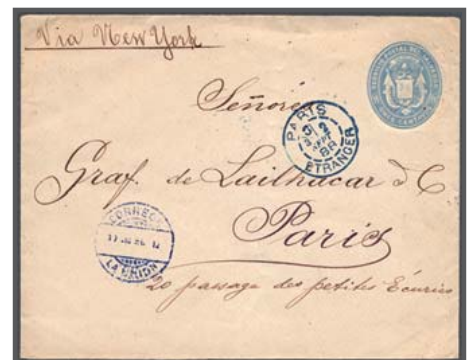 Via New York
Señores
PARIS
ETRANGER
Graf. de Lailhacar & C
Paris
CORREOS
LA UNION
20 passage des petites Écuries